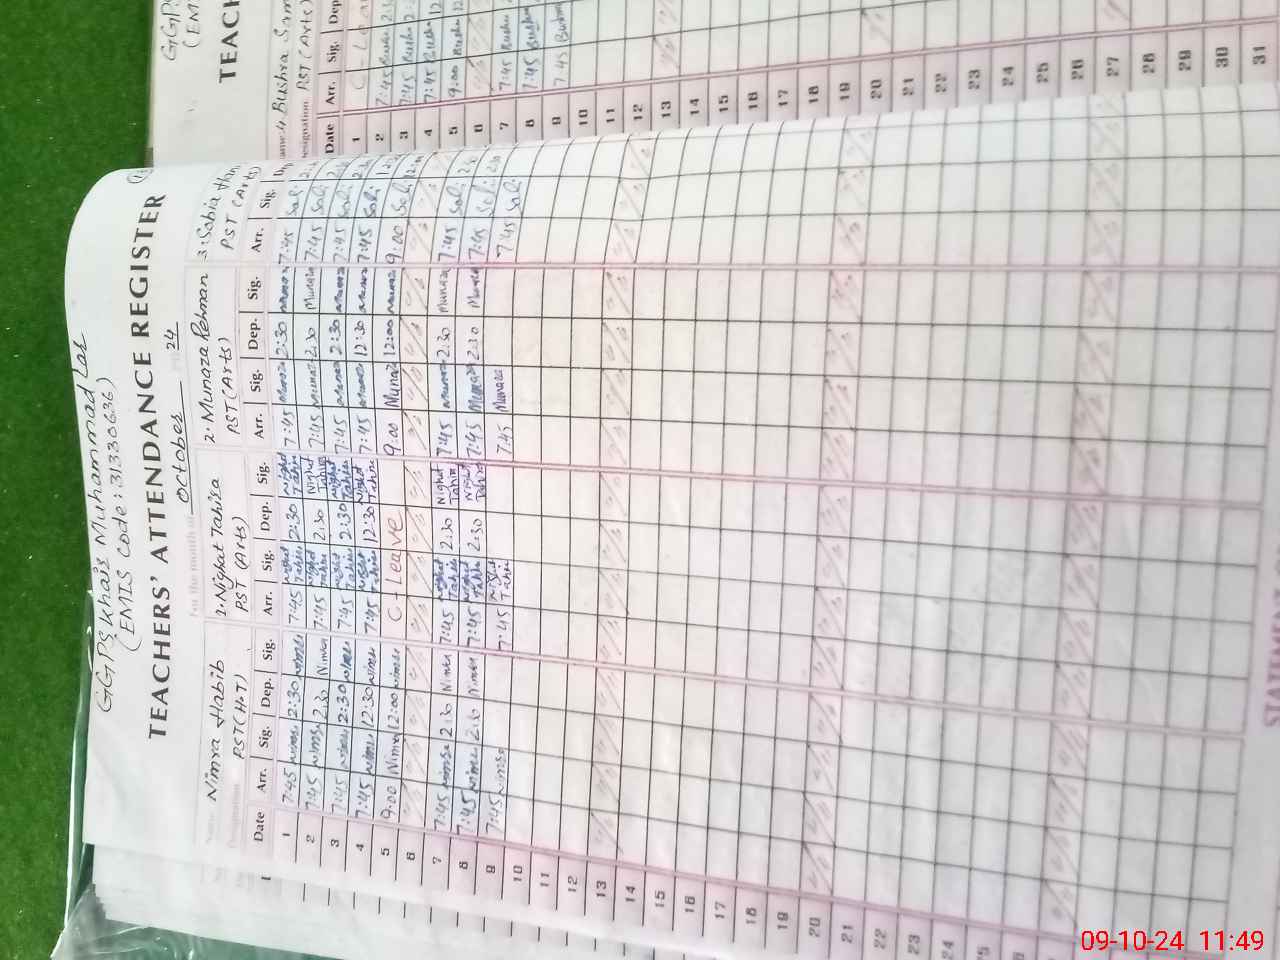 GGPS Khais Muhammad Las
(EMIS Code: 31330636)
TEACHERS' ATTENDANCE REGISTER
For the month of October 24
Nimra Habib 1. Nighat Tahira 2. Munaza Rehman 3. Sabia
PST (H.T) PST (Arts) PST (Arts) PST (Arts)
Date Arr. Sig. Dep. Sig. Arr. Sig. Dep. Sig. Arr. Sig. Dep. Sig. Arr. Sig.
1 7:45 Nimra 2:30 Nimra 7:45 Nighat Tahira 2:30 Nighat Tahira 7:45 Munaza 2:30 Munaza 7:45
2 7:45 Nimra 2:30 Nimra 7:45 Nighat Tahira 2:30 Nighat Tahira 7:45 Munaza 2:30 Munaza 7:45
3 7:45 Nimra 2:30 Nimra 7:45 Nighat Tahira 2:30 Nighat Tahira 7:45 Munaza 2:30 Munaza 7:45
4 7:45 Nimra 12:30 Nimra 7:45 Nighat Tahira 12:30 Nighat Tahira 7:45 Munaza 12:30 Munaza 7:45
5 9:00 Nimra 12:00 Nimra C - Leave 9:00 Munaza 12:00 Munaza 9:00
6
7 7:45 Nimra 2:30 Nimra 7:45 Nighat Tahira 2:30 Nighat Tahira 7:45 Munaza 2:30 Munaza 7:45
8 7:45 Nimra 2:30 Nimra 7:45 Nighat Tahira 2:30 Nighat Tahira 7:45 Munaza 2:30 Munaza 7:45
9 7:45 Nimra 7:45 Nighat Tahira 7:45 Munaza 7:45
10
11
12
13
14
15
16
17
18
19
20
21
22
23
24
GGPS
(EMIS
TEACH
4. Bushra Sam
PST (Arts)
Date Arr. Sig. Dep
1 C - Lea
2 7:45 Bushra
3 7:45 Bushra
4 7:45 Bushra 12
5 9:00 Bushra
6
7 7:45 Bushra
8 7:45 Bushra
9 7:45 Bushra
10
11
12
13
14
15
16
17
18
19
20
21
22
23
24
25
26
27
28
29
30
31
STATEMENT
09-10-24 11:49